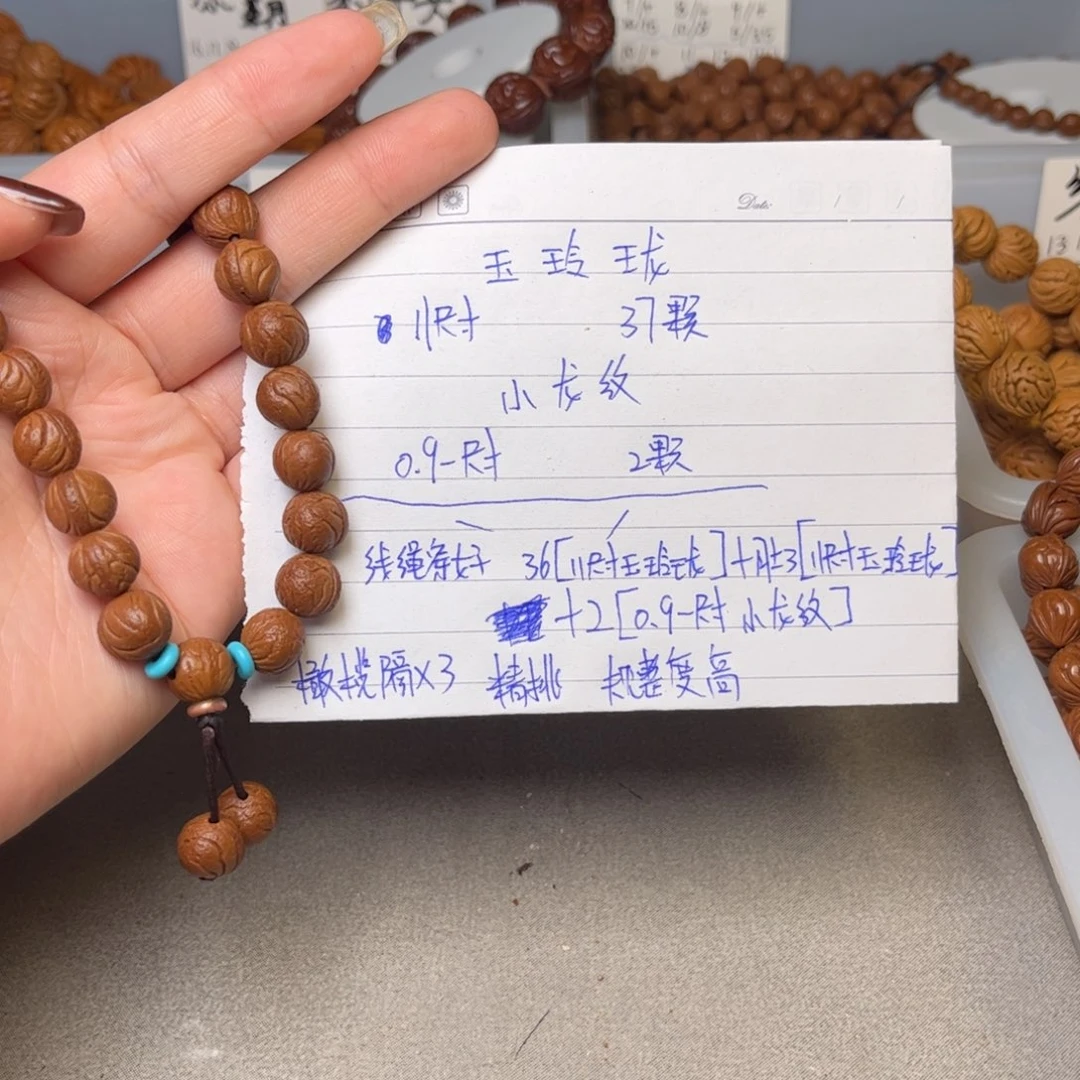 Date: / /
玉玲珑
11尺寸 37颗
小龙纹
0.9-尺寸 2颗
线绳穿好 36[11尺寸玉玲珑]+肚3[11尺寸玉玲珑]
+2[0.9-尺寸小龙纹]
橄榄隔X3 精挑 规整度高